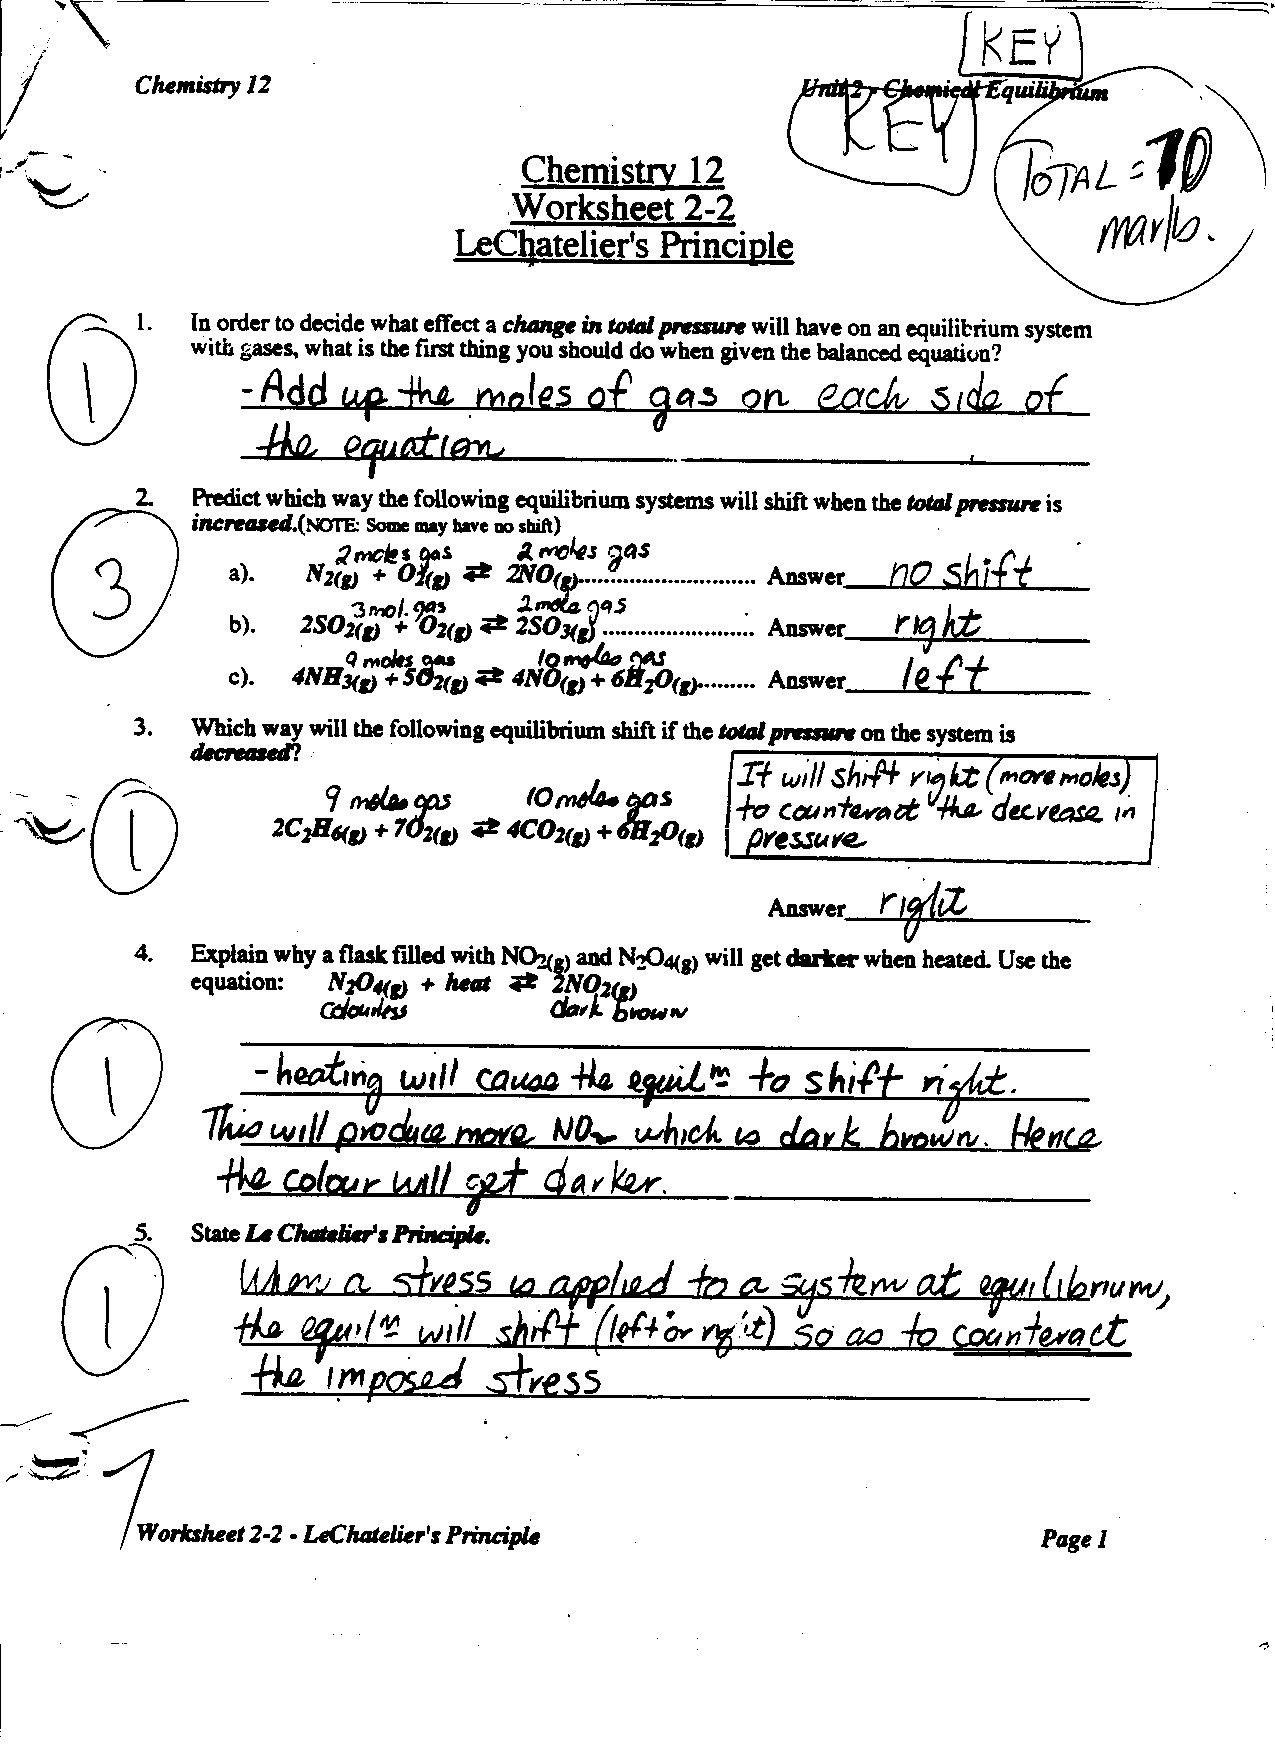 KEY
Chemistry 12
Unit 2 - Chemical Equilibrium
KEY
TOTAL = 70
marks.
Chemistry 12
Worksheet 2-2
LeChatelier's Principle
1. In order to decide what effect a change in total pressure will have on an equilibrium system
with gases, what is the first thing you should do when given the balanced equation?
1
- Add up the moles of gas on each side of
the equation
2. Predict which way the following equilibrium systems will shift when the total pressure is
increased.(NOTE: Some may have no shift)
3
2 moles gas 2 moles gas
a). N2(g) + O2(g) ⇄ 2NO(g)............................ Answer no shift
3 mol. gas 2 mole gas
b). 2SO2(g) + O2(g) ⇄ 2SO3(g) ........................ Answer right
9 moles gas 10 moles gas
c). 4NH3(g) + 5O2(g) ⇄ 4NO(g) + 6H2O(g)......... Answer left
3. Which way will the following equilibrium shift if the total pressure on the system is
decreased?
1
9 moles gas 10 moles gas
2C2H6(g) + 7O2(g) ⇄ 4CO2(g) + 6H2O(g)
It will shift right (more moles)
to counteract the decrease in
pressure
Answer right
4. Explain why a flask filled with NO2(g) and N2O4(g) will get darker when heated. Use the
equation: N2O4(g) + heat ⇄ 2NO2(g)
Colourless dark brown
1
- heating will cause the equilm to shift right.
This will produce more NO2 which is dark brown. Hence
the colour will get darker.
5. State Le Chatelier's Principle.
1
When a stress is applied to a system at equilibrium,
the equilm will shift (left or right) so as to counteract
the imposed stress
Worksheet 2-2 - LeChatelier's Principle
Page 1